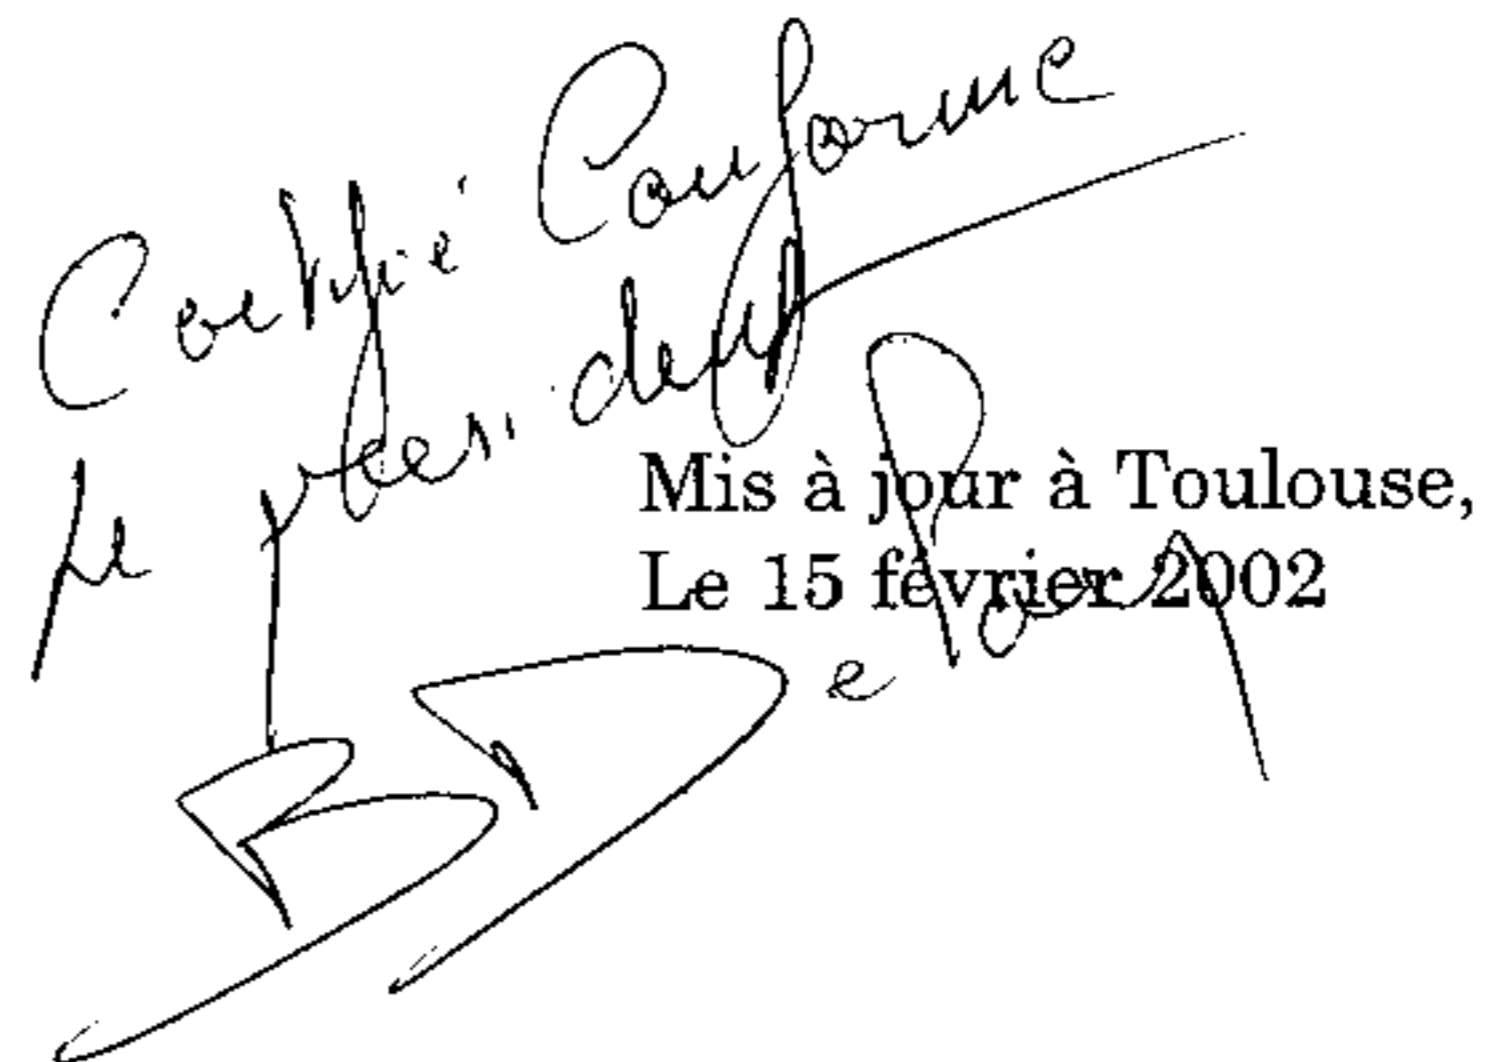 Certifié Conforme
Le président
Mis à jour à Toulouse,
Le 15 février 2002